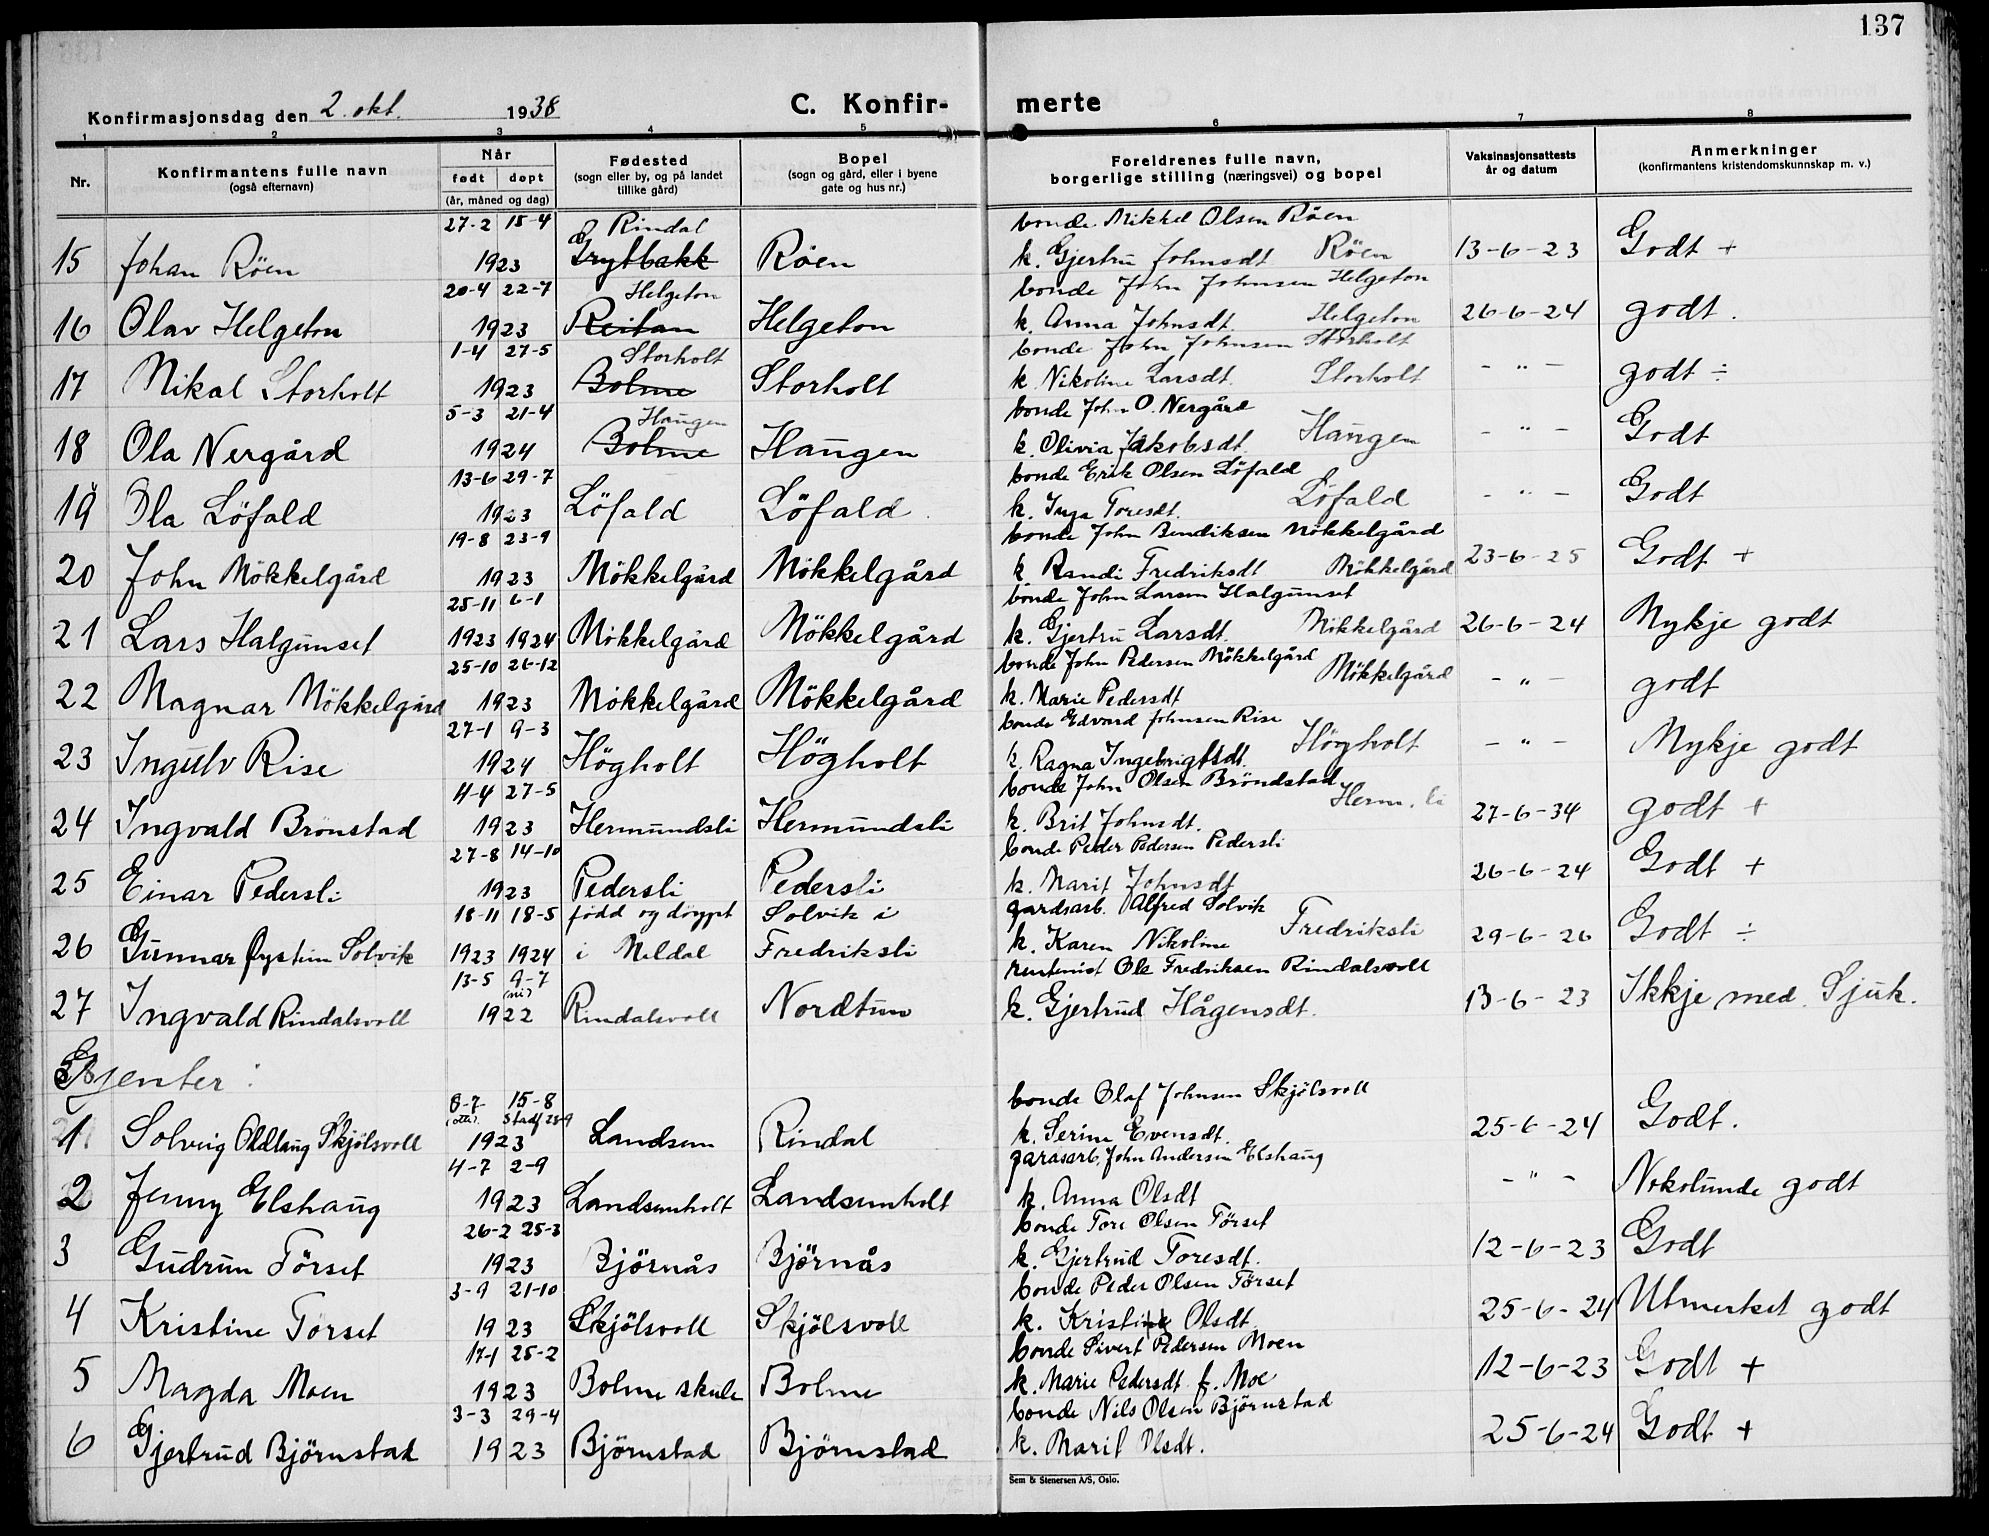 137
Konfirmasjonsdag den 2. okt. 1938
C. Konfir- merte
1 2 3 4 5 6 7 8
Nr.
Konfirmantens fulle navn
(også efternavn)
Når
født døpt
(år, måned og dag)
Fødested
(sogn eller by, og på landet
tillike gård)
Bopel
(sogn og gård, eller i byene
gate og hus nr.)
Foreldrenes fulle navn,
borgerlige stilling (næringsvei) og bopel
Vaksinasjonsattests
år og datum
Anmerkninger
(konfirmantens kristendomskunnskap m. v.)
27-2 15-4 Rindal bonde Mikkel Olsen Röen
15 Johan Röen 1923 Grytbakk Röen k. Gjertru Johnsdt Röen 13-6-23 Godt +
20-4 22-7 Helgeton bonde John Johnsen Helgeton
16 Olav Helgeton 1923 Reitan Helgeton k. Anna Johnsdt. Helgeton 26-6-24 godt.
1-4 27-5 Storholt bonde John Johnsen Storholt
17 Nikal Storholt 1923 Bolme Storholt k. Nikoline Larsdt. Storholt - " - godt ÷
5-3 21-4 Haugen bonde John O. Nergård
18 Ola Nergård 1924 Bolme Haugen k. Olivia Jakobsdt. Haugen - " - Godt
13-6 29-7 bonde Erik Olsen Löfald
19 Ola Löfald 1923 Löfald Löfald k. Inga Toresdt. Löfald - " - Godt
19-8 23-9 bonde John Bendiksen Mökkelgård
20 John Mökkelgård 1923 Mökkelgård Mökkelgård k. Randi Fredriksdt Mökkelgård 23-6-25 Godt +
25-11 6-1 bonde John Larsen Halgunset
21 Lars Halgunset 1923 1924 Mökkelgård Mökkelgård k. Gjertru Larsdt. Mökkelgård 26-6-24 Mykje godt
25-10 26-12 bonde John Pedersen Mökkelgård
22 Magnar Mökkelgård 1923 Mökkelgård Mökkelgård k. Marie Pedersdt Mökkelgård - " - godt
27-1 9-3 bonde Edvard Johnsen Rise
23 Ingulv Rise 1924 Högholt Högholt k. Ragna Ingebrigtsdt. Högholt - " - Mykje godt
4-4 27-5 bonde John Olsen Bröndstad
24 Ingvald Brönstad 1923 Hermundsli Hermundsli k. Brit Johnsdt. Herm. li 27-6-34 godt +
27-8 14-10 bonde Peder Pedersen Pedersli
25 Einar Pedersli 1923 Pedersli Pedersli k. Marit Johnsdt 26-6-24 Godt +
18-11 18-5 född og döypt Solvik i gardsarb. Alfred Solvik
26 Gunnar Øystein Solvik 1923 1924 i Meldal Fredriksli k. Karen Nikoline Fredriksli 29-6-26 Godt ÷
13-5 9-7 (ni) rentenist Ole Fredriksen Rindalsvoll
27 Ingvald Rindalsvoll 1922 Rindalsvoll Nordtun k. Gjertrud Hågensdt. 13-6-23 Ikkje med. Sjuk.
Gjenter:
8-7- 15-8 bonde Olaf Johnsen Skjölsvoll
1 Solveig Oldlaug Skjölsvoll 1923 Landsem Rindal k. Serine Evensdt. 25-6-24 Godt.
4-7 2-9 gardsarb. John Andersen Elshaug
2 Jenny Elshaug 1923 Landsemholt Landsemholt k. Anna Olsdt - " - Nokolunde godt
26-2 25-3 bonde Tore Olsen Törset
3 Gudrun Törset 1923 Björnås Björnås k. Gjertrud Toresdt. 12-6-23 Godt
3-9 21-10 bonde Peder Olsen Törset
4 Kristine Törset 1923 Skjölsvoll Skjölsvoll k. Kristine Olsdt 25-6-24 Utmerket godt
17-1 25-2 bonde Sivert Pedersen Moen
5 Magda Moen 1923 Bolme skule Bolme k. Marie Pedersdt f. Moe 12-6-23 Godt +
3-3 29-4 bonde Nils Olsen Björnstad
6 Gjertrud Björnstad 1923 Björnstad Björnstad k. Marit Olsdt. 25-6-24 Godt +
Sem & Stenersen A/S, Oslo.